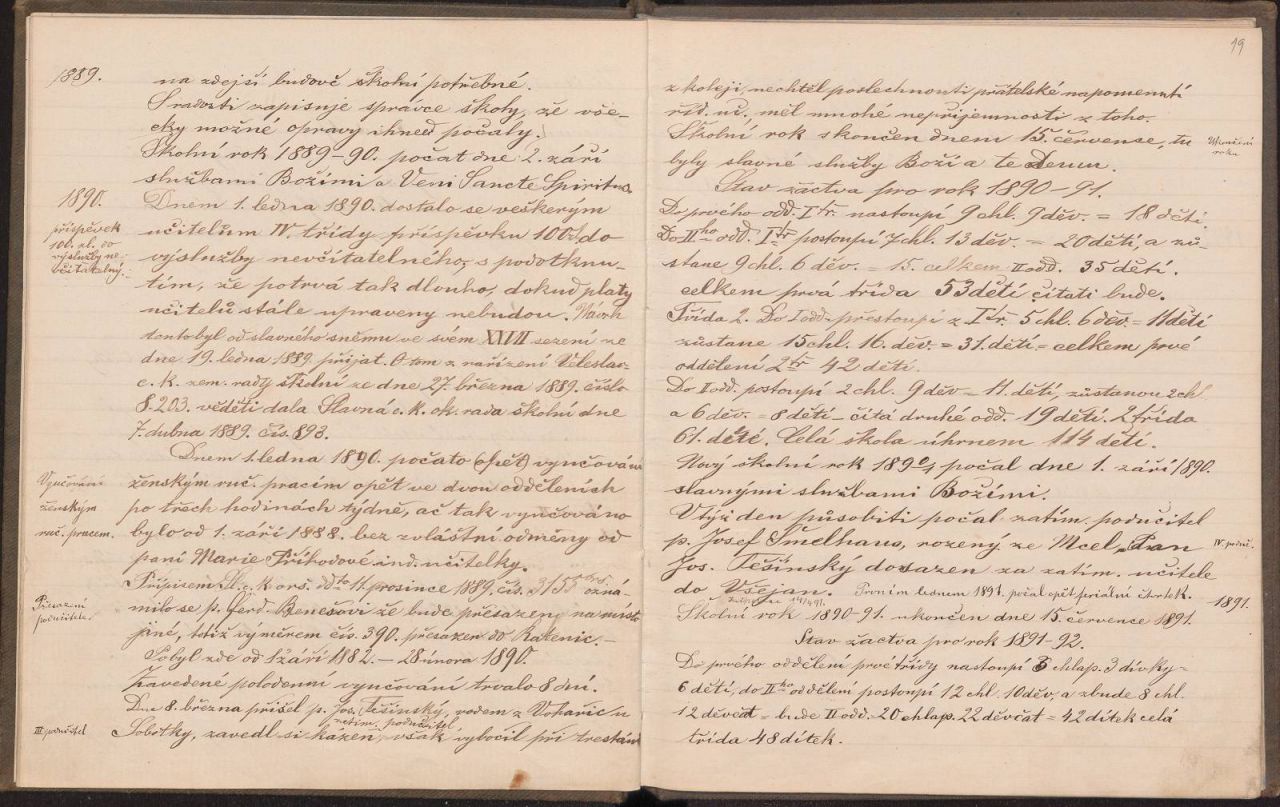 1889.
na zdejší budově školní potřebné.
S radostí zapisuje správce školy, že vše-
cky možné opravy ihned počaly.
Školní rok 1889-90. počat dne 2. září
službami Božími a Veni Sancte Spiritus.
1890.
Dnem 1. ledna 1890. dostalo se veškerým
příspěvek
100 zl. do
výslužby ne-
včítatelný.
učitelům IV. třídy příspěvku 100 zl do
výslužby nevčítatelného, s podotknu-
tím, že potrvá tak dlouho, dokud platy
učitelů stále upraveny nebudou. Návrh
tento byl od slavného sněmu ve svém XXVII sezení ze
dne 19. ledna 1889. přijat. O tom z nařízení Veleslav.
c. k. zem. rady školní ze dne 27. března 1889. číslo
8.203. věděti dala Slavná c. k. ok. rada školní dne
7. dubna 1889. čís. 893.
Dnem 1. ledna 1890. počato (opět) vyučování
Vyučování
ženským
ruč. pracem.
ženským ruč. pracím opět ve dvou odděleních
po třech hodinách týdně, ač tak vyučováno
bylo od 1. září 1888. bez zvláštní odměny od
paní Marie Příhodové ind. učitelky.
Přípisem Sl. c. k. o. š. r. ddto 11. prosince 1889. čís. 3155 ozná-
Přesazení
podučitele.
milo se p. Ferd. Benešovi že bude přesazen na místo
jiné, totiž výměrem čís. 390. přesazen do Ratenic. -
Pobyl zde od 1 září 1882. - 28 února 1890.
Zavedené polodenní vyučování trvalo 8 dní.
Dne 8. března přišel p. Jos. Těšínský, rodem z Vohařic u
zatím. podučitel
III podučitel
Sobotky, zavedl si kázeň, však vybočil při trestání
19
z koleji, nechtěl poslechnouti přátelské napomenutí
říd. uč. měl mnohé nepříjemnosti z toho.
Školní rok skončen dnem 15. července, tu
Ukončení
roku
byly slavné služby Boží a te Deum.
Stav žáctva pro rok 1890-91.
Do prvého odd. I tř. nastoupí 9 chl. 9 děv. = 18 dětí.
Do II ho odd. I tř postoupí 7 chl. 13 děv. = 20 dětí, a zů-
stane 9 chl. 6 děv. = 15. celkem II odd. 35 dětí.
celkem prvá třída 53 dětí čítati bude.
Třída 2. Do I odd. přestoupí z I tř. 5 chl. 6 děv. = 11 dětí
zůstane 15 chl. 16. děv. = 31. dětí = celkem prvé
oddělení 2 tř 42 dětí.
Do II odd. postoupí 2 chl. 9 děv = 11. dětí, zůstanou 2 chl.
a 6 děv. = 8 dětí - čítá druhé odd. 19 dětí. 2 třída
61. dětí. Celá škola úhrnem 114 dětí.
Nový školní rok 1890/1 počal dne 1. září 1890.
slavnými službami Božími.
V týž den působiti počal zatím. podučitel
p. Josef Šmelhaus, rozený ze Mcel, Pan
IV. poduč.
Jos. Těšínský dosazen za zatím. učitele
do Všejan. Prvním lednem 1891. počal opět feriální čtvrtek.
1891.
Školní rok 1890-91. ukončen dne 15. července 1891.
Stav žactva pro rok 1891-92.
Do prvého oddělení prvé třídy nastoupí 3 chlap. 3 dívky =
6 dětí, do II ho oddělení postoupí 12 chl. 10 děv. a zbude 8 chl.
12 děvčat = bude II odd. 20 chlap. 22 děvčat = 42 dítek celá
třída 48 dítek.